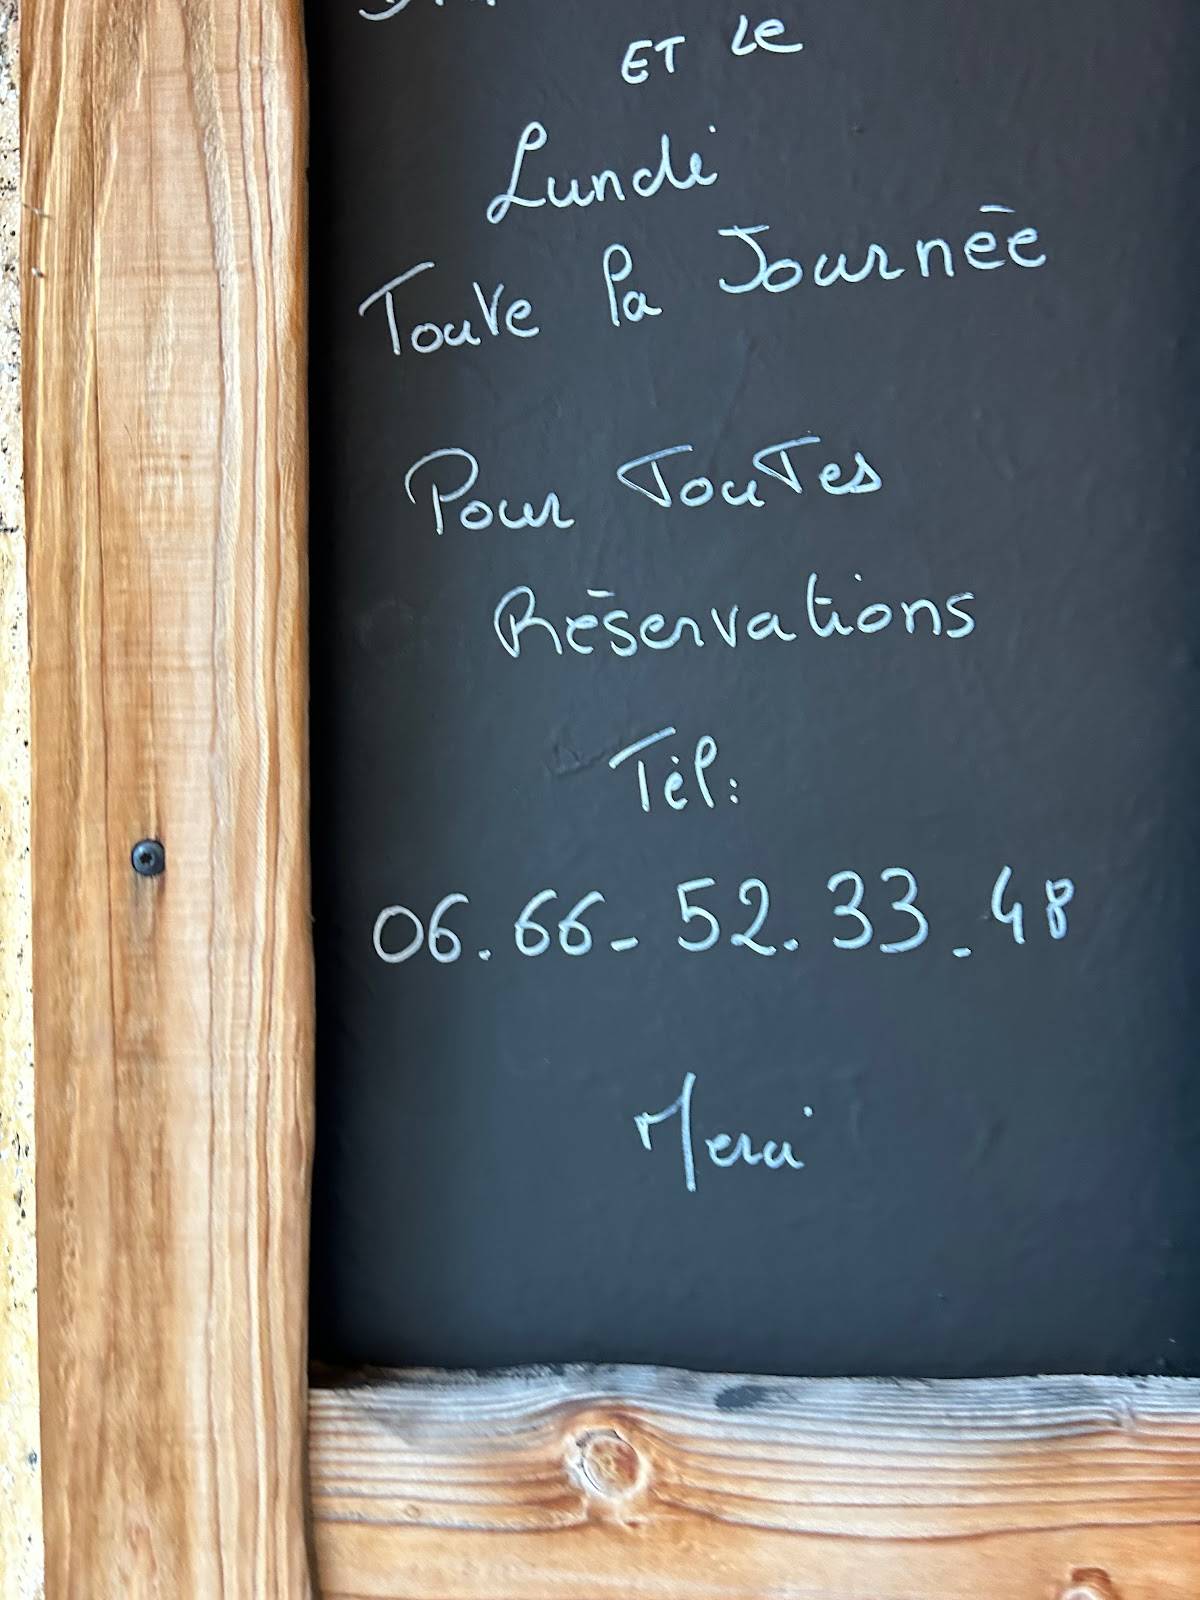 ET le
Lundi
Toute la Journée
Pour Toutes
Réservations
Tél:
06.66-52.33.48
Merci